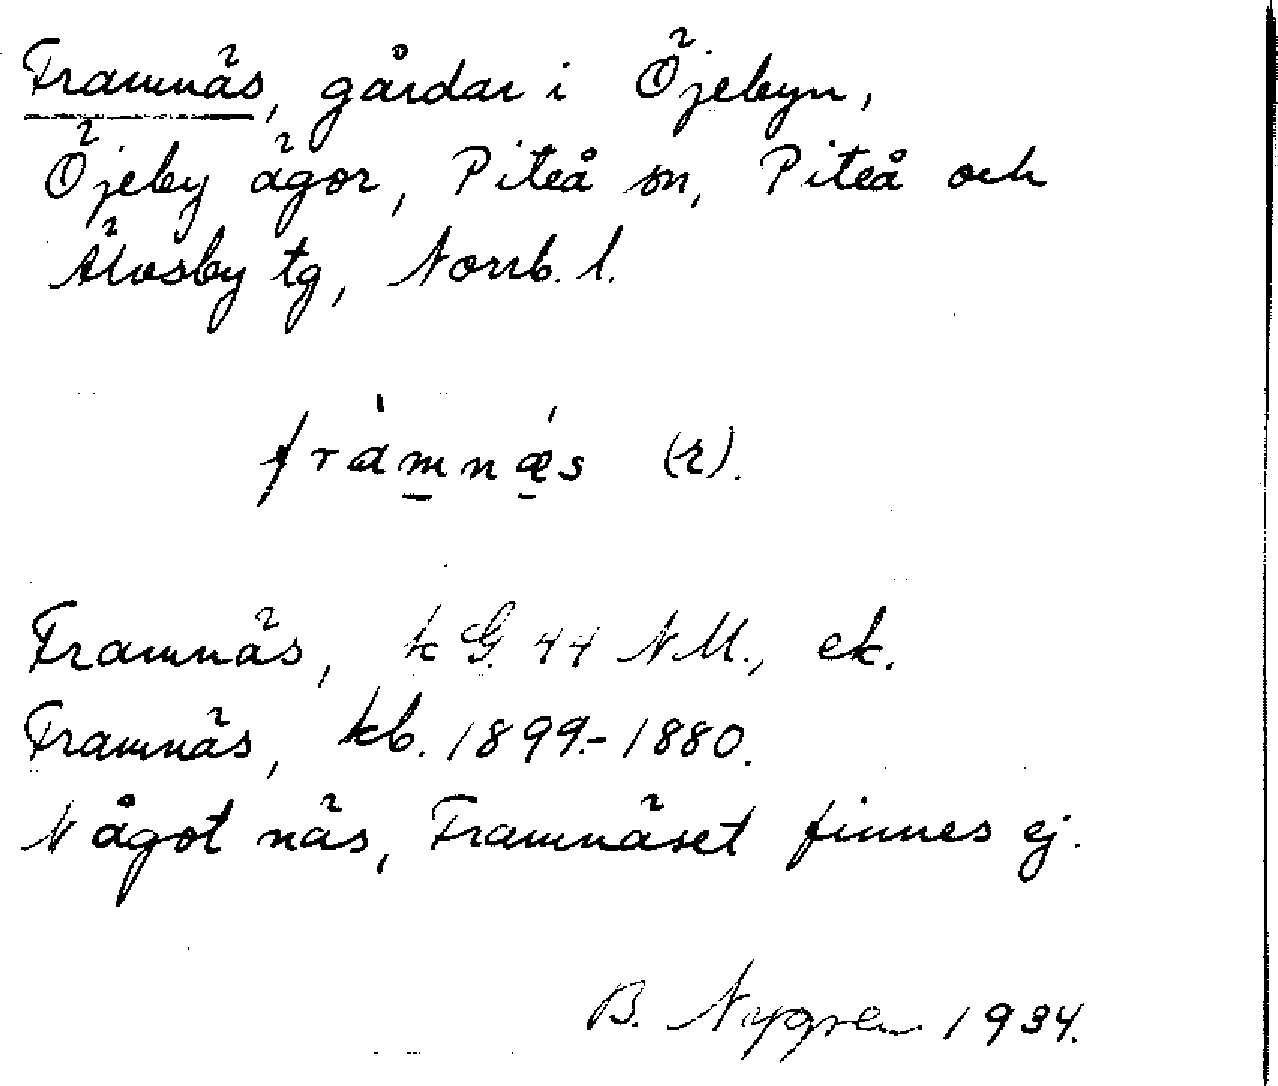 Framnäs, gårdar i Öjebyn,
Öjeby ägor, Piteå sn, Piteå och
Älvsby tg, Norrb. l.
fràmnǽs (r).
Framnäs, k G. 44 N M., ek.
Framnäs, kb. 1899.-1880.
Något näs, Framnäset finnes ej.
B. Nygren 1934.